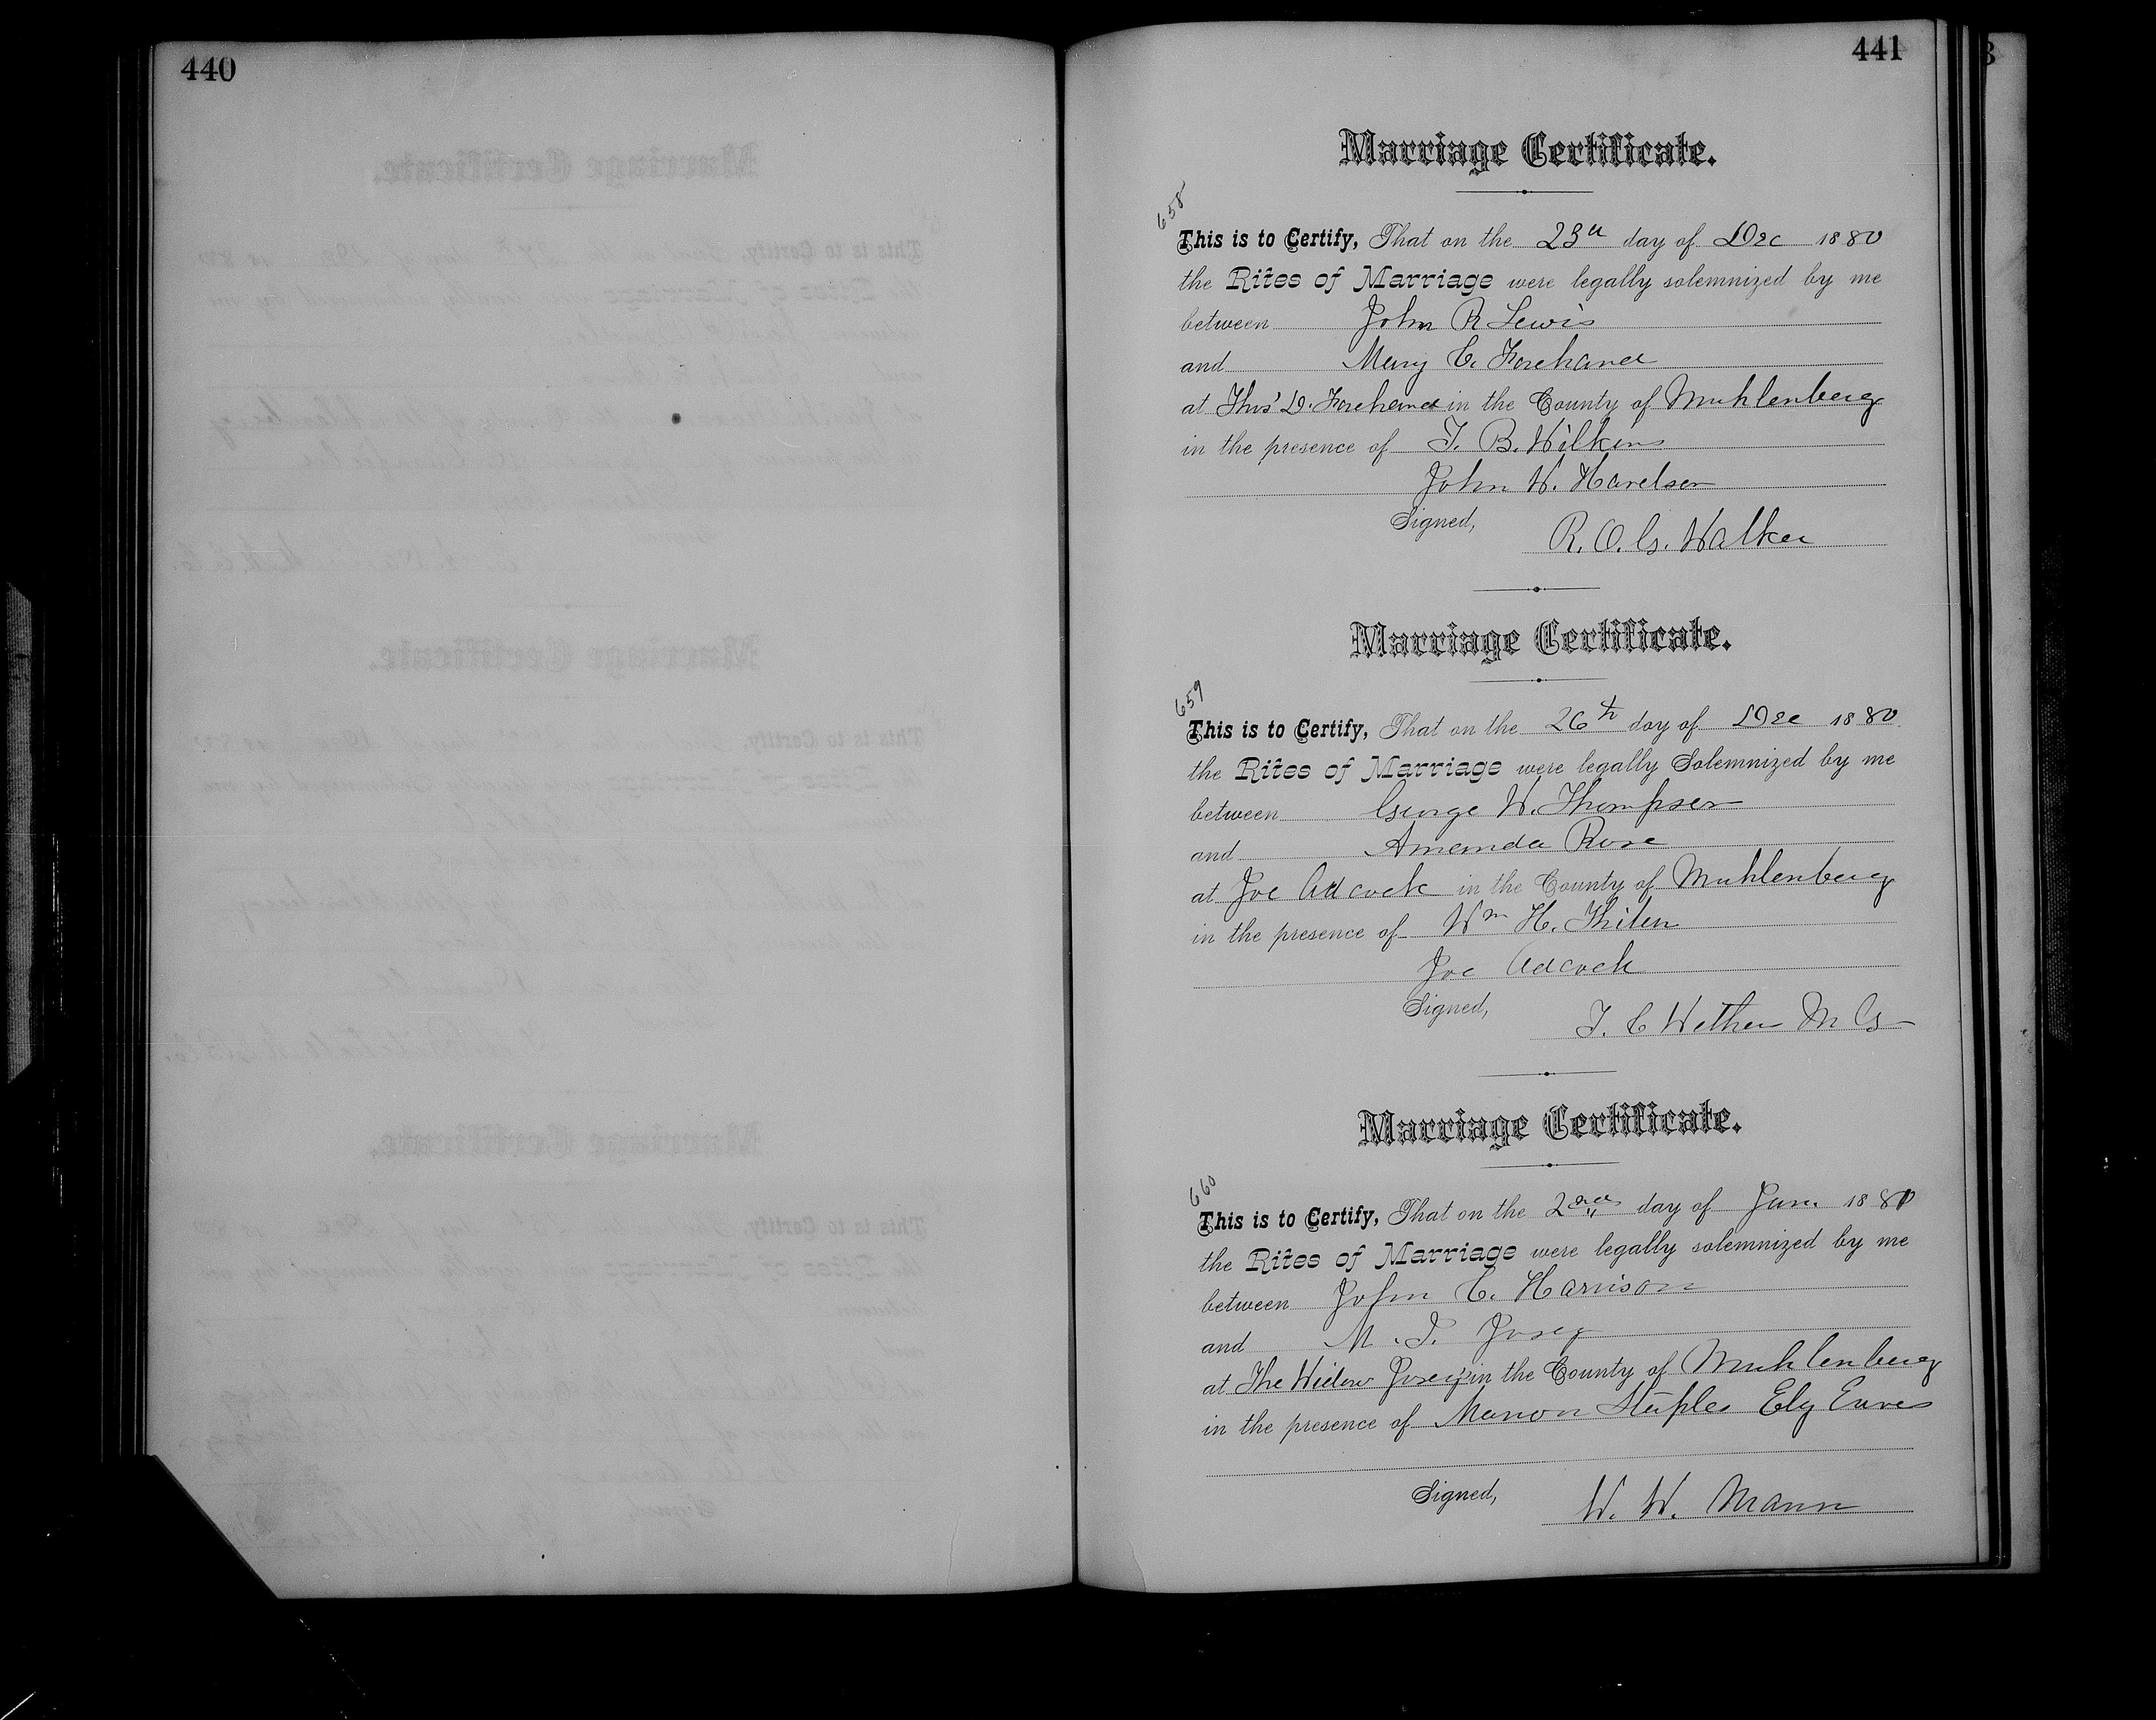 440
441
Marriage Certificate.
658
This is to Certify, That on the 23d day of Dec 1880
the Rites of Marriage were legally solemnized by me
between John R Lewis
and Mary C. Forehand
at Thos D. Forehand in the County of Muhlenberg
in the presence of T. B. Wilkins
John W. Harelson
Signed,
R. O. G. Walker
Marriage Certificate.
659
This is to Certify, That on the 26th day of Dec 1880
the Rites of Marriage were legally Solemnized by me
between George W. Thompson
and Amanda Rose
at Joe Adcock in the County of Muhlenberg
in the presence of Wm H.
Joe Adcock
Signed,
T. C M G
Marriage Certificate.
660
This is to Certify, That on the 2nd day of Jan. 188
the Rites of Marriage were legally solemnized by me
between John C. Harrison
and M. J. Posey
at The Widow Posey's in the County of Muhlenberg
in the presence of Marion Staples Ely Eaves
Signed,
W. W. Mann